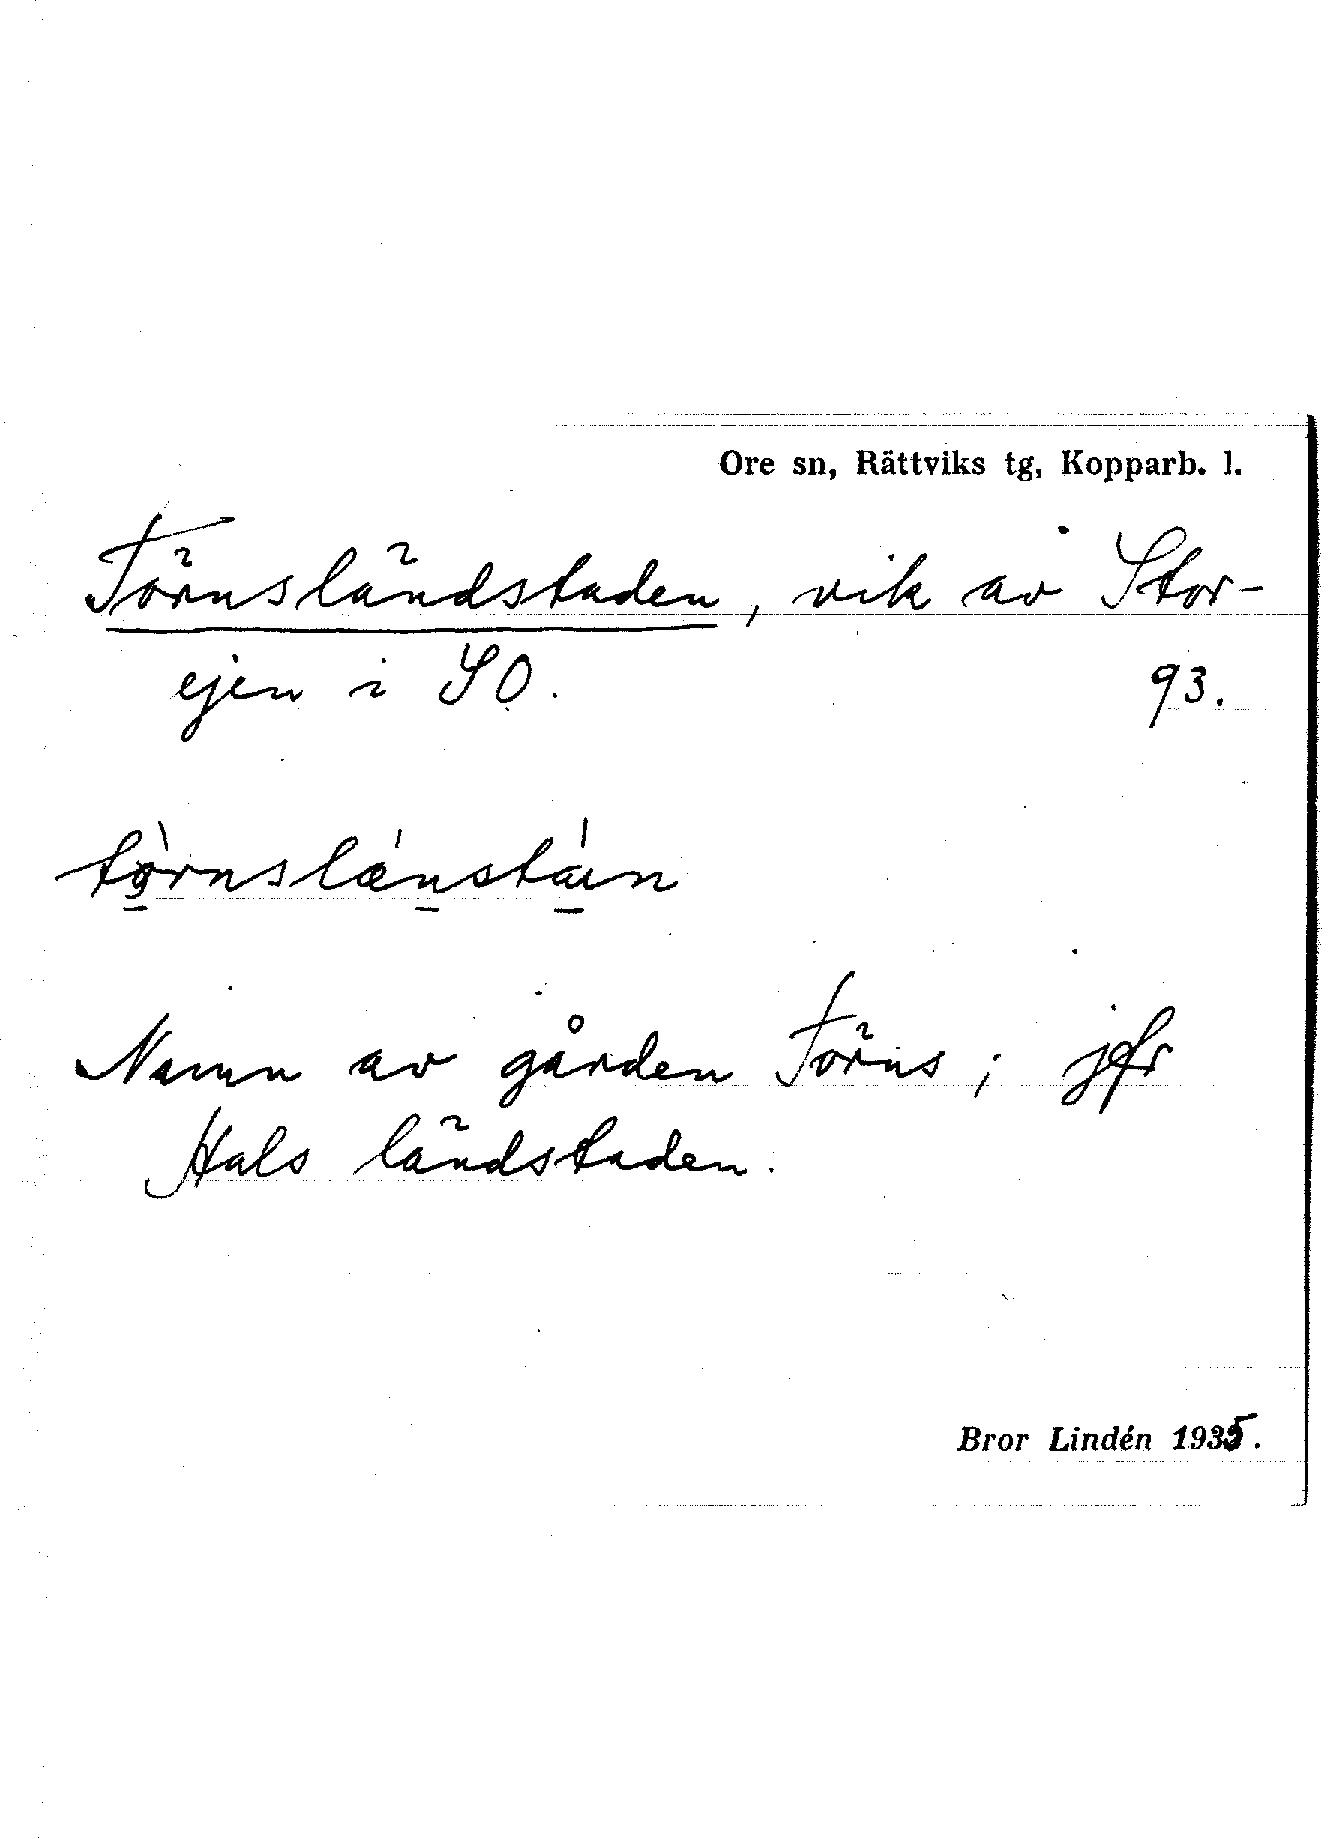 Ore sn, Rättviks tg, Kopparb. l.
Törnsländstaden, vik av Stor-
ejen i SO. 93.
tö̀rnslǽnstáın
Namn av gården Törns; jfr
Hals ländstaden.
Bror Lindén 1935.